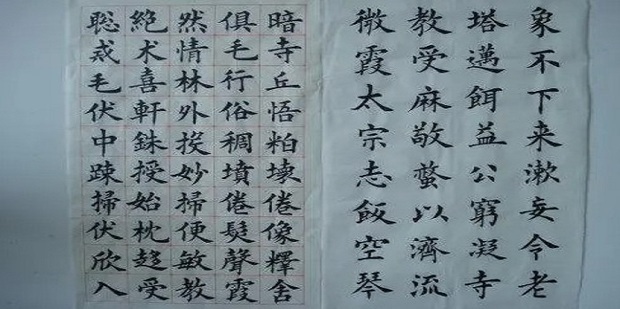 象不下来漱妄令老
塔邁餌益公窮凝寺
教受麻敬蝥以濟流
微霞太宗志飯空琴
暗寺丘悟粕壊倦像釋舍
俱毛行俗稠墳倦髮聲霞
然情林外挨妙掃便敏教
絶术喜軒銖授始枕趍受
聡戒毛伏中踈掃伏欣入